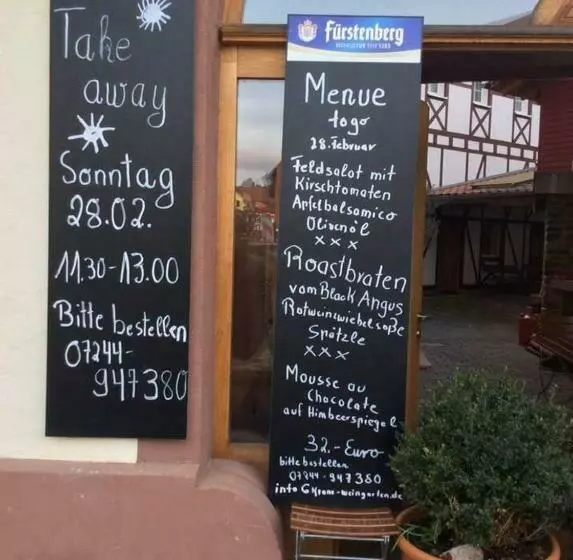 Take
away
Sonntag
28.02.
11.30-13.00
Bitte bestellen
07244-
947380
Fürstenberg
Menue
togo
28. Februar
Feldsalat mit
Kirschtomaten
Apfelbalsamico
Olivenöl
x x x
Roastbraten
vom Black Angus
Rotweinzwiebelsoße
Spätzle
x x x
Mousse au
Chocolate
auf Himbeerspiegel
32.- Euro
bitte bestellen
07244-947380